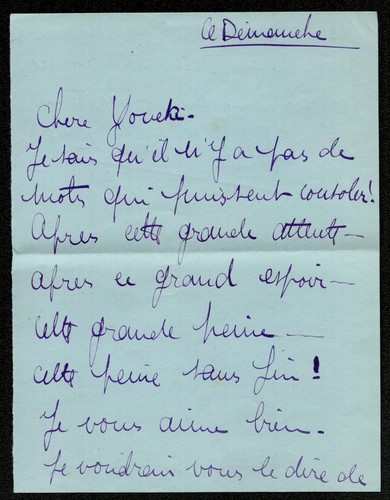 Ce Dimanche
Chere Youki -
Je sais qu'il n'y a pas de
mots qui puissent consoler!
Apres cette grande attente -
apres ce grand espoir -
cette grande peine -
cette peine sans fin!
Je vous aime bien -
Je voudrais vous le dire de